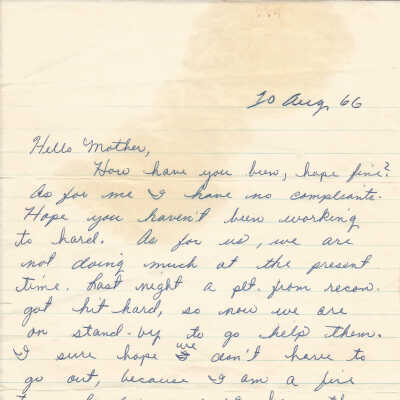 10 Aug 66
Hello Mother,
How have you been, hope fine?
As for me I have no compliants.
Hope you haven't been working
to hard. As for us, we are
not doing much at the present
time. Last night a plt. from recon.
got hit hard, so now we are
on stand-by to go help them.
I sure hope we don't have to
go out, because I am a fire